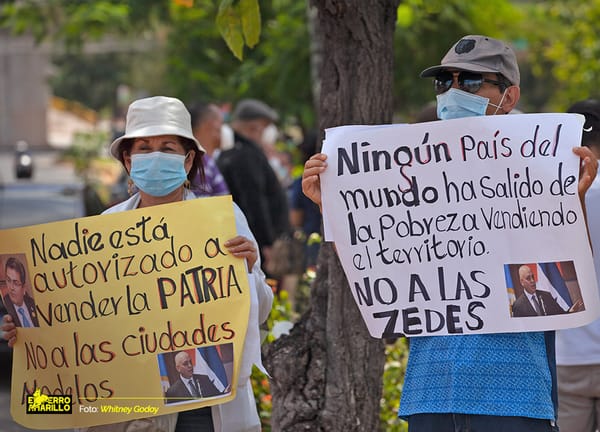 Nadie está
autorizado a
vender LA PATRIA
No a las ciudades
Modelos
Ningún País del
mundo ha Salido de
la Pobreza Vendiendo
el territorio.
NO A LAS
ZEDES
EL PERRO
AMARILLO
Foto: Whitney Godoy